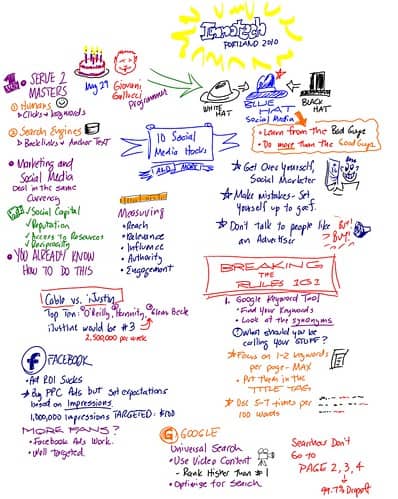 Innotech
PORTLAND 2010
SERVE 2
MASTERS
① Humans
→ Clicks + keywords
② Search Engines
→ Backlinks + Anchor Text
• Marketing and
Social Media
Deal in the same
Currency
Social Capital
✓ Reputation
✓ Access to Resources
✓ Reciprocity
• YOU ALREADY KNOW
HOW TO DO THIS
May 29
Giovanni
Gallucci
Programmer
10 Social
Media Hacks
AND MORE!
Measuring
• Reach
• Relevance
• Influence
• Authority
• Engagement
WHITE
HAT
BLUE
HAT
Social Media
BLACK
HAT
• Learn from the Bad Guys
• Do more than the Good Guys
Get Over yourself,
Social Marketer
Make mistakes - Set
Yourself up to goof.
Don't Talk to people like
an Advertiser
BUY!
BUY!
Cable vs. iJustine
Top Ten: O'Reilly, Hannity, Glenn Beck
iJustine would be #3
2,500,000 per week
FACEBOOK
• Ad ROI Sucks
Buy PPC Ads but set expectations
based on Impressions
1,000,000 Impressions TARGETED: $100
MORE FANS?
• Facebook Ads Work.
• Well Targeted.
BREAKING
THE
RULES 101
1. Google Keyword Tool
• Find Your Keywords
• Look at the synonyms
What should you be
calling your STUFF?
Focus on 1-2 keywords
per page - MAX
• Put them in the
TITLE TAG
Use 5-7 times per
100 words
G GOOGLE
Universal Search
• Use Video Content
- Rank Higher Than #1
• Optimize for Search
Searchers Don't
Go to
PAGE 2, 3, 4
99.7% Dropoff